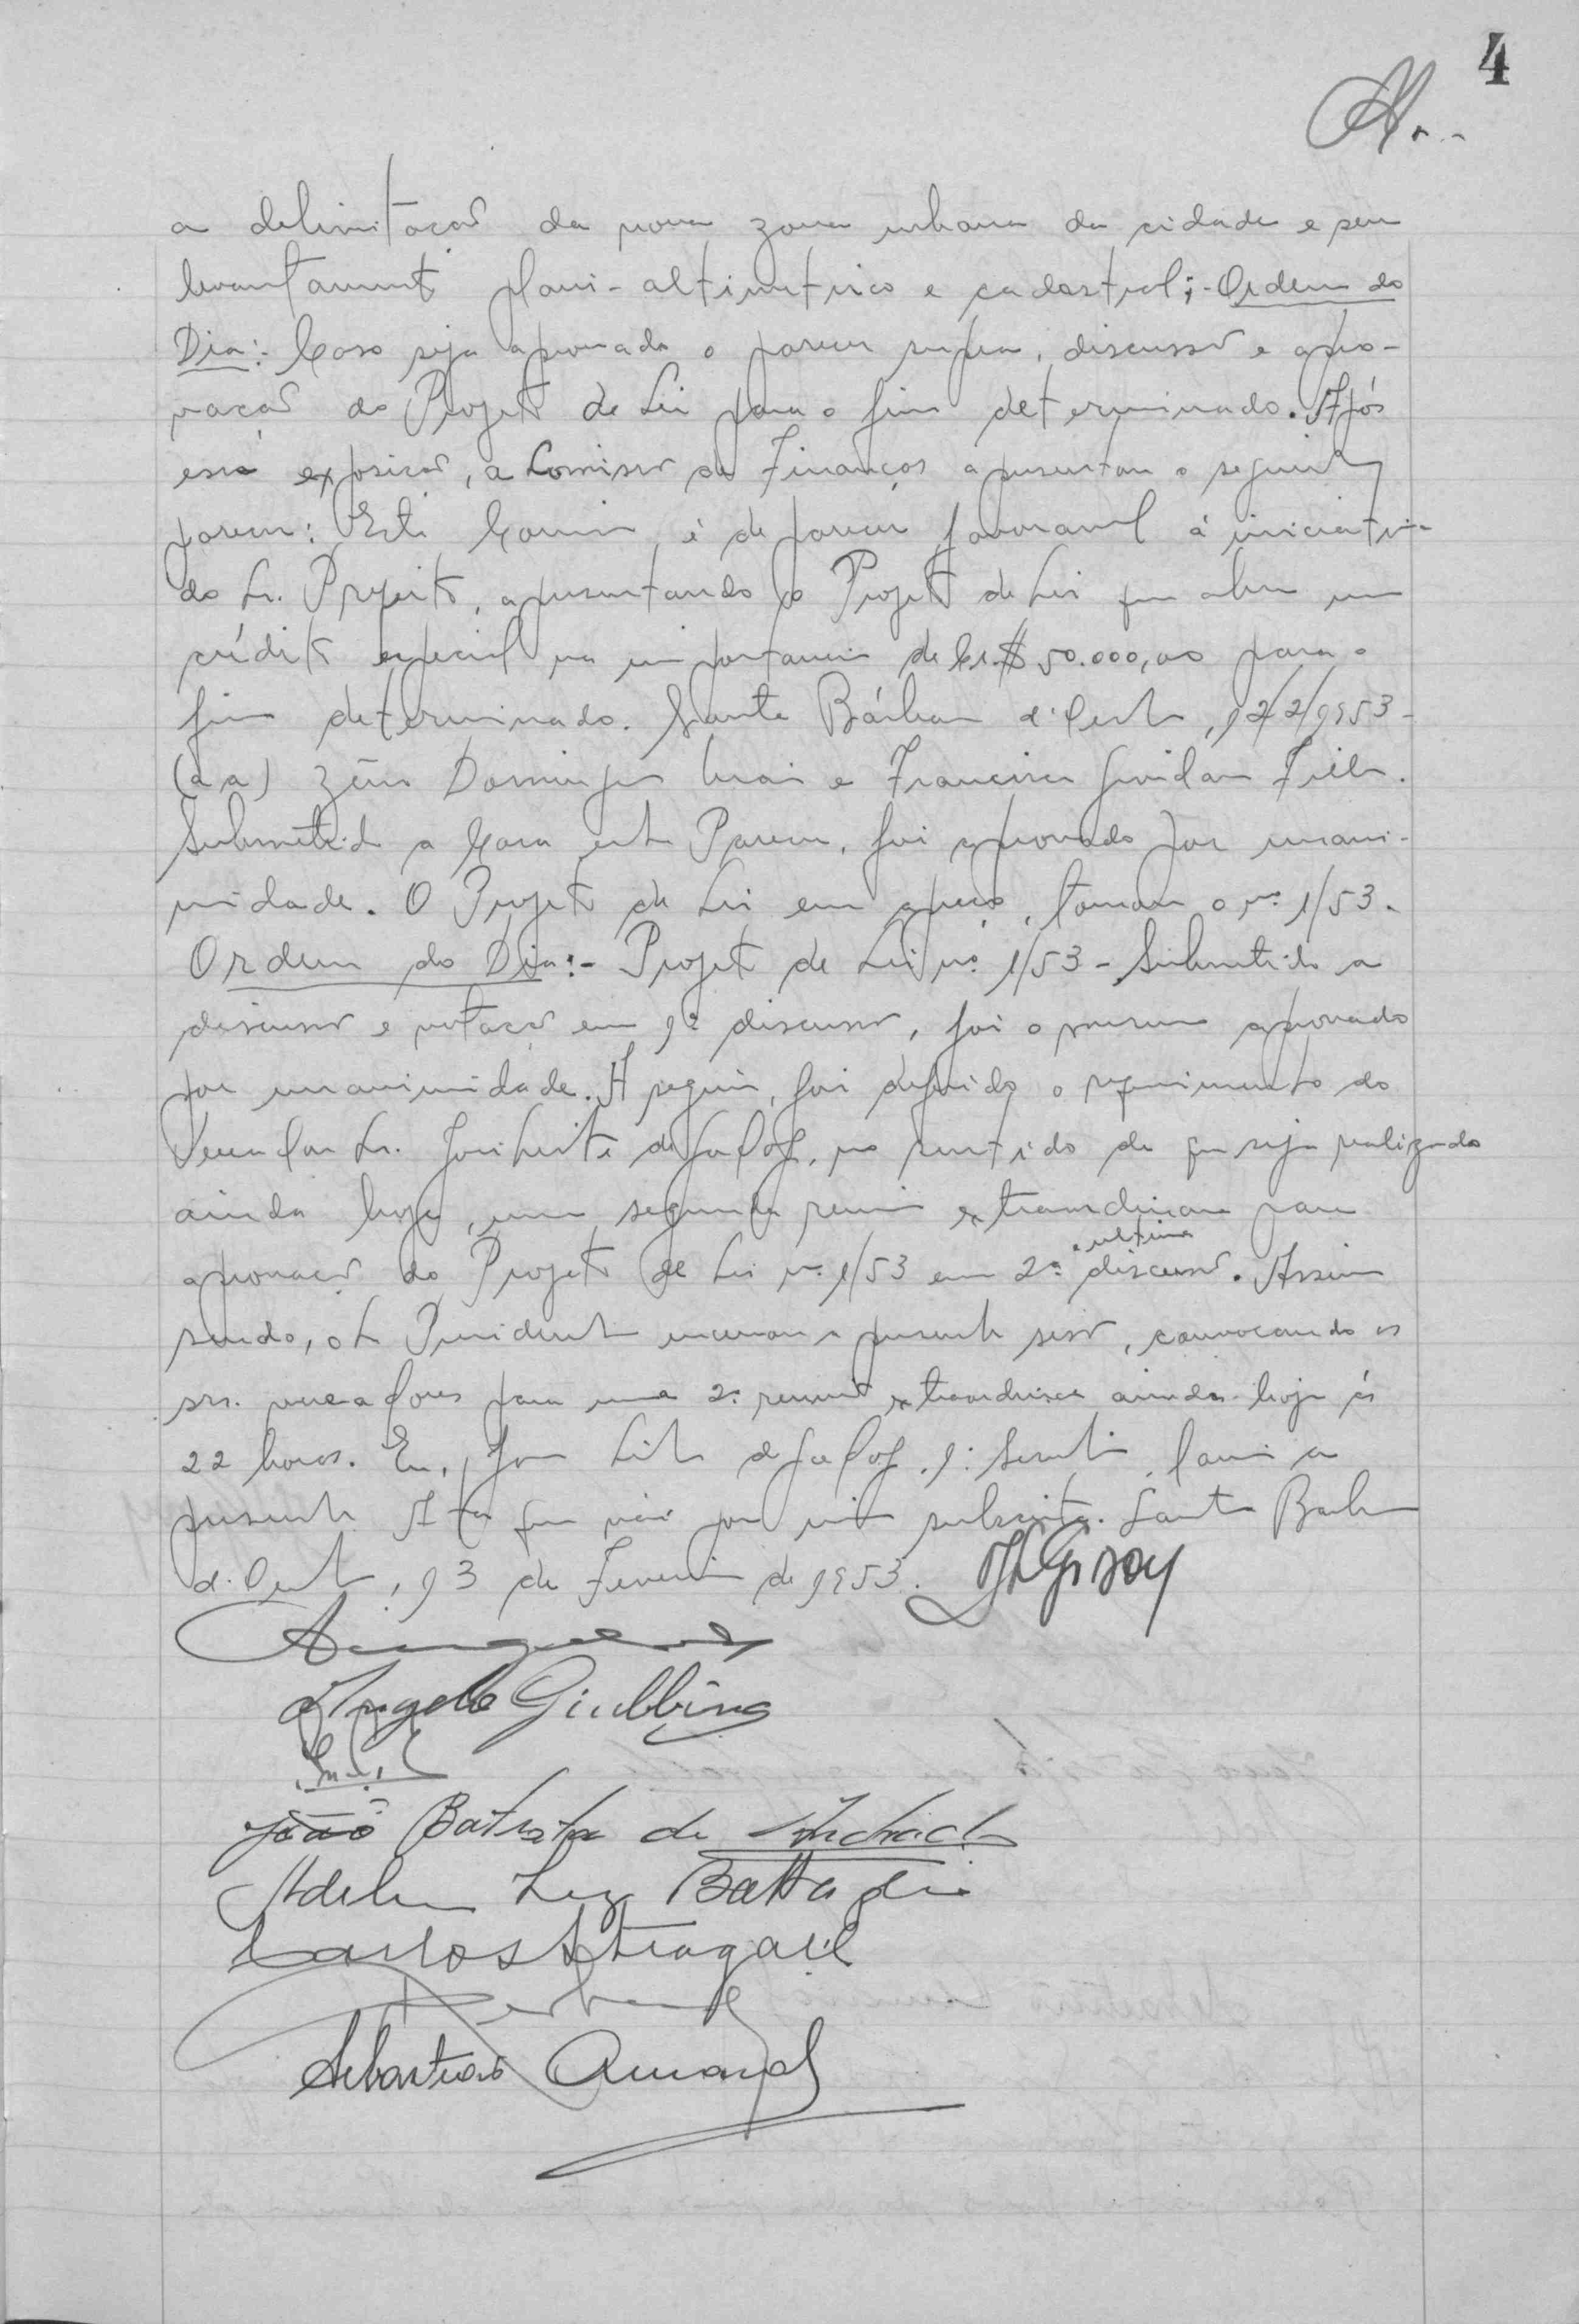 4
a delimitação da nova zona urbana da cidade e seu
levantamento plani-altimetrico e cadastral;- Ordem do
Dia:- Caso seja aprovado o parecer supra, discussão e apro-
vação do Projeto de Lei para o fim determinado. Após
essa exposição, a Comissão de Finanças apresentou o seguinte
parecer: Esta Comissão é de parecer favoravel á iniciativa
do Sr. Prefeito, apresentando o Projeto de Lei que abre um
crédito especial na importancia de Cr.$ 50.000,00 para o
fim determinado. Santa Bárbara d'Oeste, 12/2/1953-
(aa) Zêno Domingos Maia e Francisco Filho.
Submetido a Casa este Parecer, foi aprovado por unani-
midade. O Projeto de Lei em apreço, tomou o nº 1/53.
Ordem do Dia:- Projeto de Lei nº 1/53 - Submetido a
discussão e votação em 1ª discussão, foi o mesmo aprovado
por unanimidade. A seguir, foi deferido o requerimento do
Vereador Sr. José Leite de Godoy, no sentido de que seja realizado
ainda hoje, uma segunda reunião extraordinaria para
aprovação do Projeto de Lei nº 1/53 em 2ª e ultima discussão. Assim
sendo, o Sr Presidente encerrou a presente sessão, convocando os
srs. vereadores para uma 2ª reunião extraordinaria ainda hoje ás
22 horas. Eu, José Leite de Godoy, 1º Secretário, lavrei a
presente Ata que vai por mim subscrita. Santa Barbara
d'Oeste, 13 de Fevereiro de 1953. JLGodoy
Angelo Giubbina
João Batista de Andrade
Luiz Battagin
Carlos Steagall
Sebastião Amaral